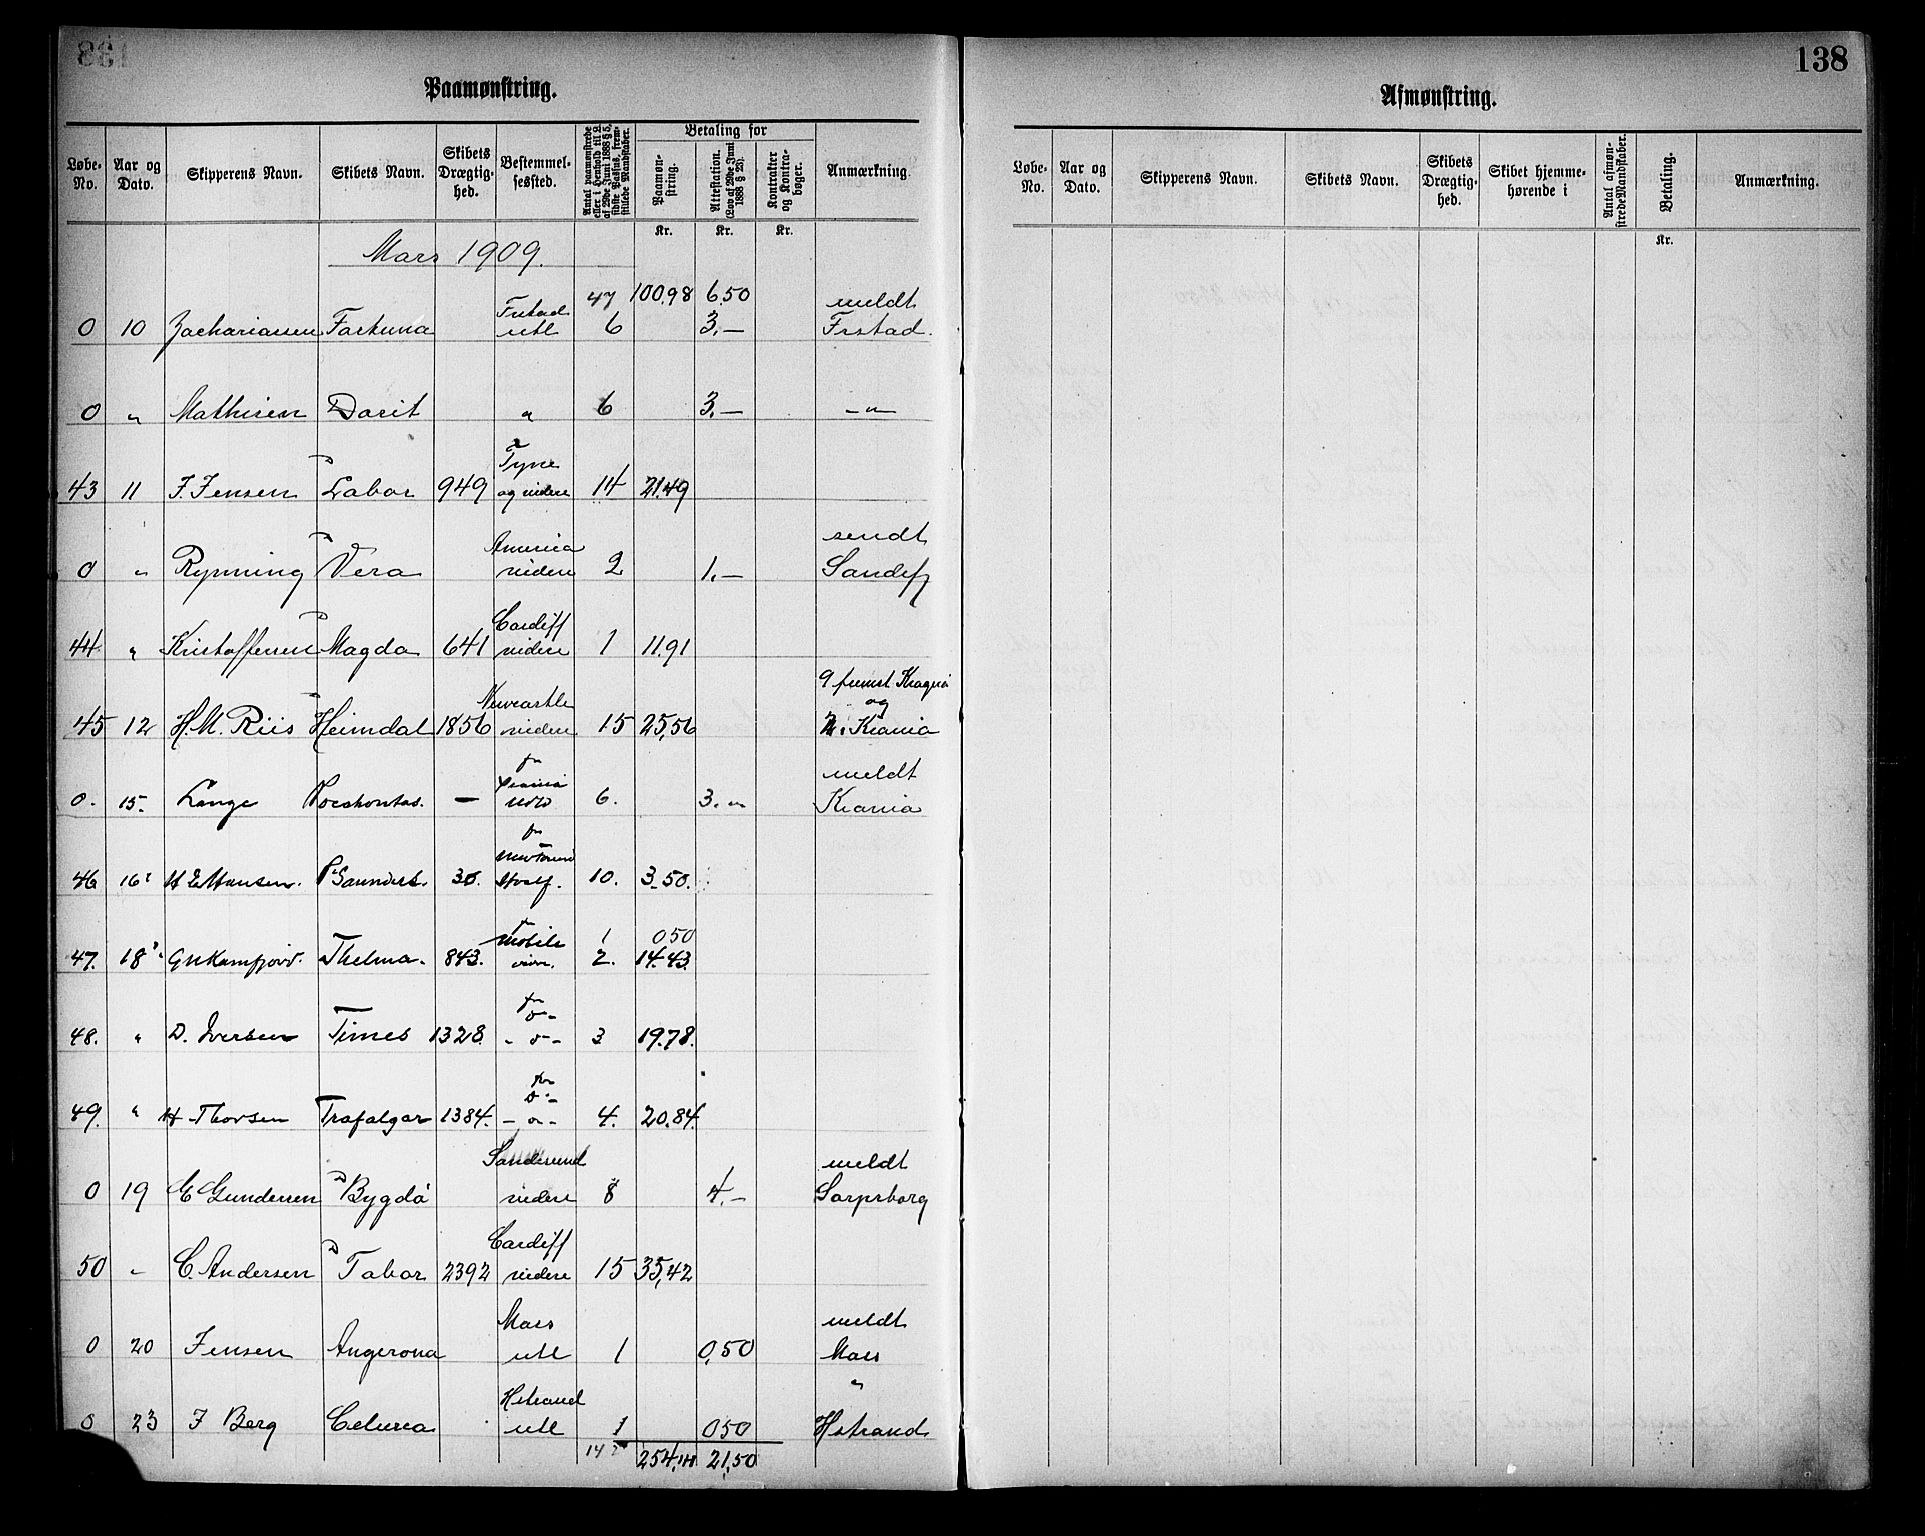 138
Paamønstring.
Løbe-No. Aar og Dato. Skipperens Navn. Skibets Navn. Skibets Drægtighed. Bestemmelsessted. Antal paamønstrede eller i Henhold til L. af 29de Juni 1888 § 5, sidste Passus, fremstillede Mandskaber. Betaling for Paamønstring. Attestation. (Lov af 29de Juni 1888 § 25). Kontrakter og Kontrabøger. Anmærkning.
Kr. Kr. Kr.
Mars 1909.
47 100.98 6.50
Frstad meldt
0 10 Zachariasen Fortuna utl 6 3.— Frstad.
0 " Mathisen Dorit " 6 3.— —"—
Tyne
43 11 J. Jensen D Labor 949 og videre 14 21.49
America sendt
0 " Rynning D Vera videre 2 1.— Sandefj
Cardiff
44 " Kristoffersen D Magda 641 videre 1 11.91
Newcastle 9 fremst. Kragerø og
45 12 H. M. Riis D Heimdal 1856 videre 15 25,56 2. Krania
fra Krania meldt
0. 15. Lange Pocahontas. — 6. 3.„ Krania
fra
46 16 H E Hansen. P Saunders. 30. Hvalf. 10. 3.50.
Mobile 1 050
47. 18 Thelma. 843. 2. 14.43.
48. " D. Iversen Times 1328. - o - 3 19.78.
49. " H Thorsen Trafalgar 1384. - o - 4. 20.84.
Sandesund meldt
0 19 C Gundersen D Bygdö videre 8 4.— Sarpsborg
Cardiff
50 " C. Andersen D Tabor 2392 videre 15 35,42
Moss meldt
0 20 Jensen Angerona utl 1 0,50 Moss
Hstrand "
0 23 J Berg utl 1 050 Hstrand
254,14 21,50
138
Afmønstring.
Løbe-No. Aar og Dato. Skipperens Navn. Skibets Navn. Skibets Drægtighed. Skibet hjemmehørende i Antal afmønstrede Mandskaber. Betaling. Anmærkning.
Kr.